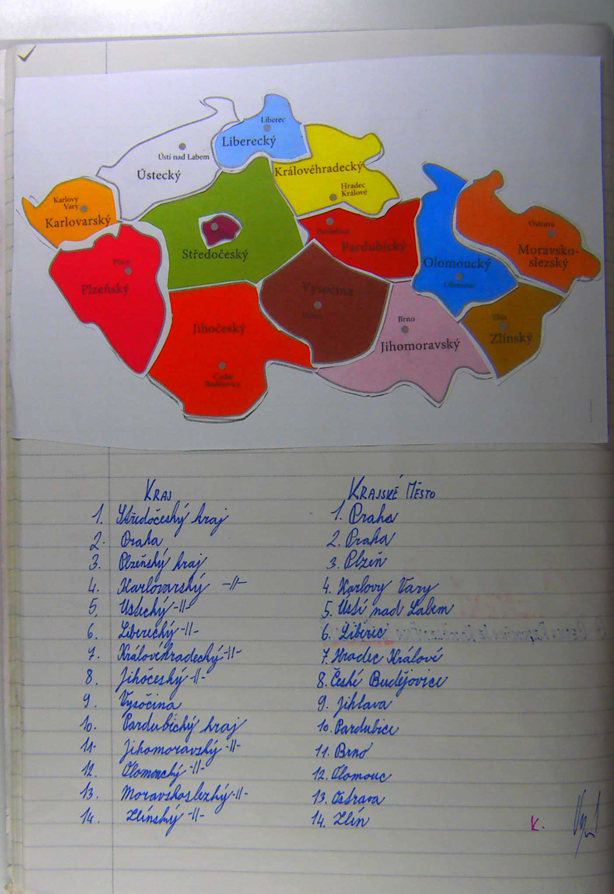 Liberec
Liberecký
Ústí nad Labem
Ústecký
Královéhradecký
Hradec
Králové
Karlovy
Vary
Karlovarský
Pardubický
Středočeský
Ostrava
Moravsko-
slezský
Olomoucký
Olomouc
Plzeň
Plzeňský
Vysočina
Jihočeský
Brno
Jihomoravský
Zlín
Zlínský
České
Budějovice
KRAJ
KRAJSKÉ MĚSTO
1. Středočeský kraj
1. Praha
2. Praha
2. Praha
3. Plzeňský kraj
3. Plzeň
4. Karlovarský -//-
4. Karlovy Vary
5. Ústecký -//-
5. Ústí nad Labem
6. Liberecký -//-
6. Liberic
7. Královehradecký -//-
7. Hradec Králové
8. Jihočeský -//-
8. České Budějovice
9. Vysočina
9. Jihlava
10. Pardubický kraj
10. Pardubice
11. Jihomoravský -//-
11. Brno
12. Olomoucký -//-
12. Olomouc
13. Moravskoslezký -//-
13. Ostrava
14. Zlínský -//-
14. Zlín
K.